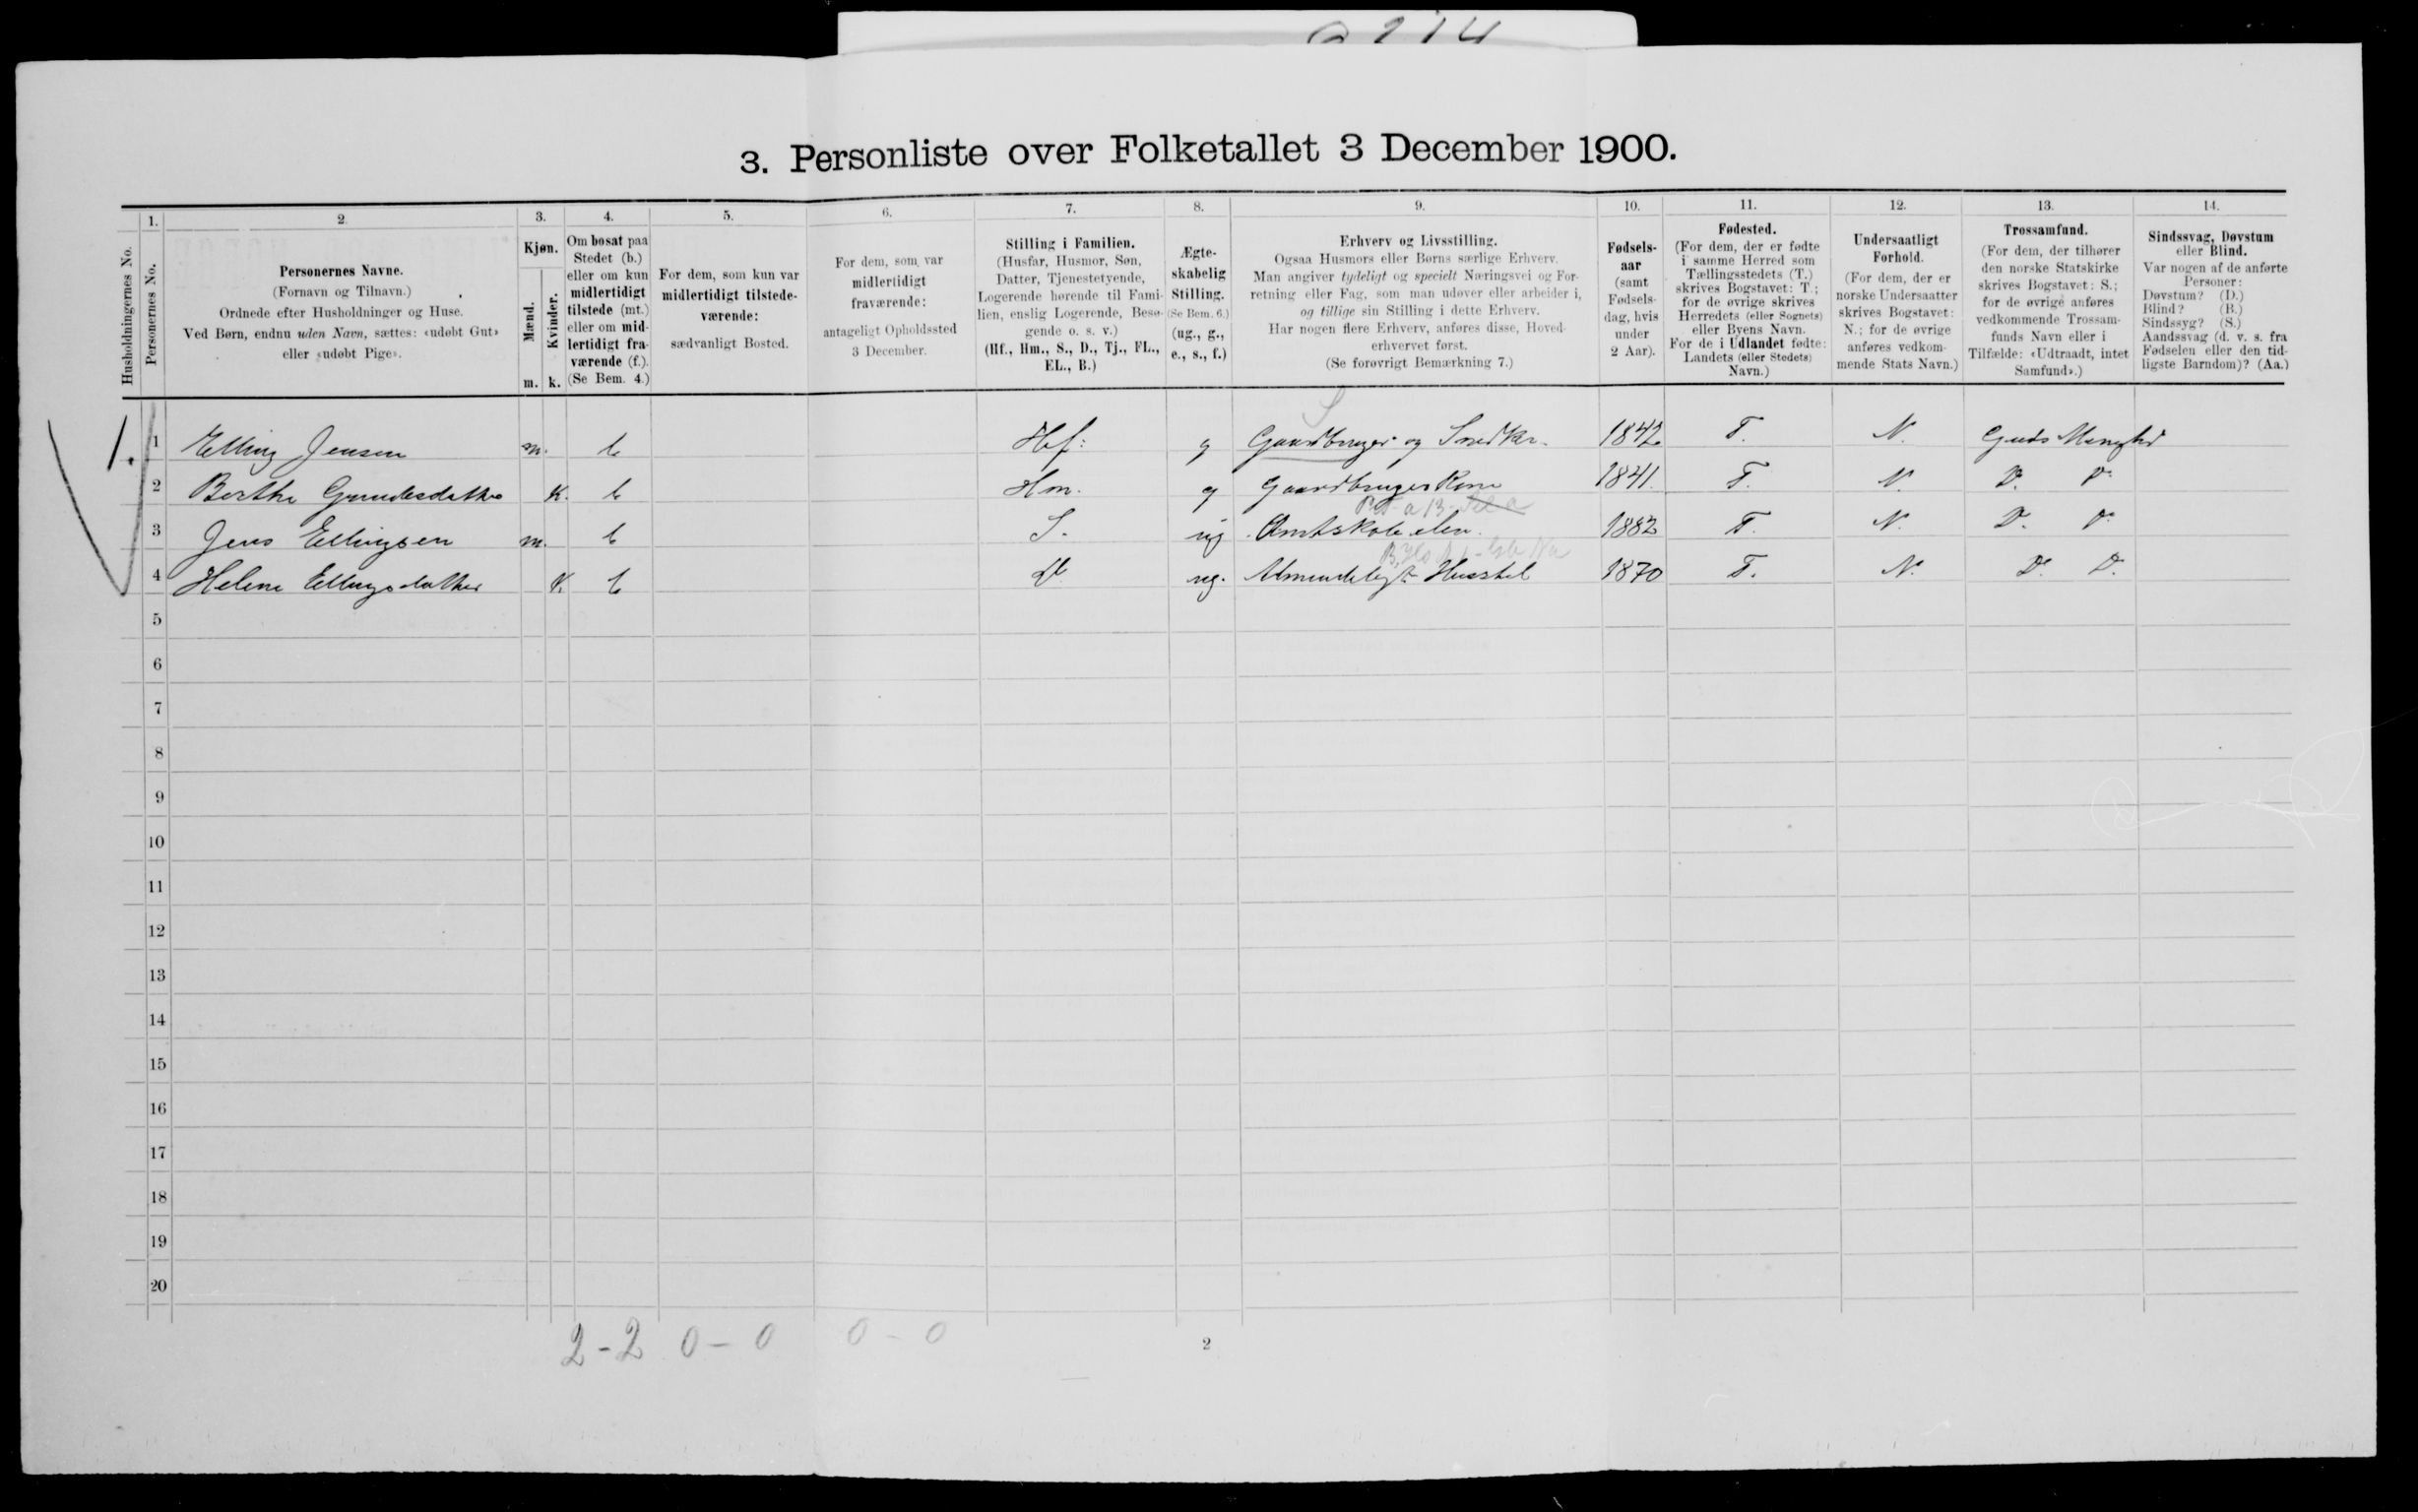 3. Personliste over Folketallet 3 December 1900.
Husholdningernes No.
1.
Personernes No.
2
Personernes Navne.
(Fornavn og Tilnavn.)
Ordnede efter Husholdninger og Huse.
Ved Børn, endnu uden Navn, sættes: «udøbt Gut»
eller «udøbt Pige».
3.
Kjøn.
Mænd.
m.
Kvinder.
k.
4.
Om bosat paa
Stedet (b.)
eller om kun
midlertidigt
tilstede (mt.)
eller om mid-
lertidigt fra-
værende (f.).
(Se Bem. 4.)
5.
For dem, som kun var
midlertidigt tilstede-
værende:
sædvanligt Bosted.
6.
For dem, som var
midlertidigt
fraværende:
antageligt Opholdssted
3 December.
7.
Stilling i Familien.
(Husfar, Husmor, Søn,
Datter, Tjenestetyende,
Logerende hørende til Fami-
lien, enslig Logerende, Besø-
gende o. s. v.)
(Hf., Hm., S., D., Tj., FL.,
EL., B.)
8.
Ægte-
skabelig
Stilling.
(Se Bem. 6.)
(ug., g.,
e., s., f.)
9.
Erhverv og Livsstilling.
Ogsaa Husmors eller Børns særlige Erhverv.
Man angiver tydeligt og specielt Næringsvei og For-
retning eller Fag, som man udøver eller arbeider i,
og tillige sin Stilling i dette Erhverv.
Har nogen flere Erhverv, anføres disse, Hoved-
erhvervet først.
(Se forøvrigt Bemærkning 7.)
10.
Fødsels-
aar
(samt
Fødsels-
dag, hvis
under
2 Aar).
11.
Fødested.
(For dem, der er fødte
i samme Herred som
Tællingsstedets (T.)
skrives Bogstavet: T.;
for de øvrige skrives
Herredets (eller Sognets)
eller Byens Navn.
For de i Udlandet fødte:
Landets (eller Stedets)
Navn.)
12.
Undersaatligt
Forhold.
(For dem, der er
norske Undersaatter
skrives Bogstavet:
N.; for de øvrige
anføres vedkom-
mende Stats Navn.)
13.
Trossamfund.
(For dem, der tilhører
den norske Statskirke
skrives Bogstavet: S.;
for de øvrige anføres
vedkommende Trossam-
funds Navn eller i
Tilfælde: «Udtraadt, intet
Samfund».)
14.
Sindssvag, Døvstum
eller Blind.
Var nogen af de anførte
Personer:
Døvstum? (D.)
Blind? (B.)
Sindssyg? (S.)
Aandssvag (d. v. s. fra
Fødselen eller den tid-
ligste Barndom)? (Aa.)
1. 1 Elling Jensen m. b Hf: g Gaardbruger og Snedker 1842 T. N. Guds Menighed
2 Berthe Gundesdatter K. b Hm. g Gaardbruger Kone 1841. T. N. D. D.
3 Jens Ellingsen m. b S. ug Amtskole elev. 1882 T. N. D. D.
4 Helene Ellingsdatter K. b D ug. Almindeligt Husstel 1870 T. N. D. D.
5
6
7
8
9
10
11
12
13
14
15
16
17
18
19
20
2-2 0-0 0-0
2